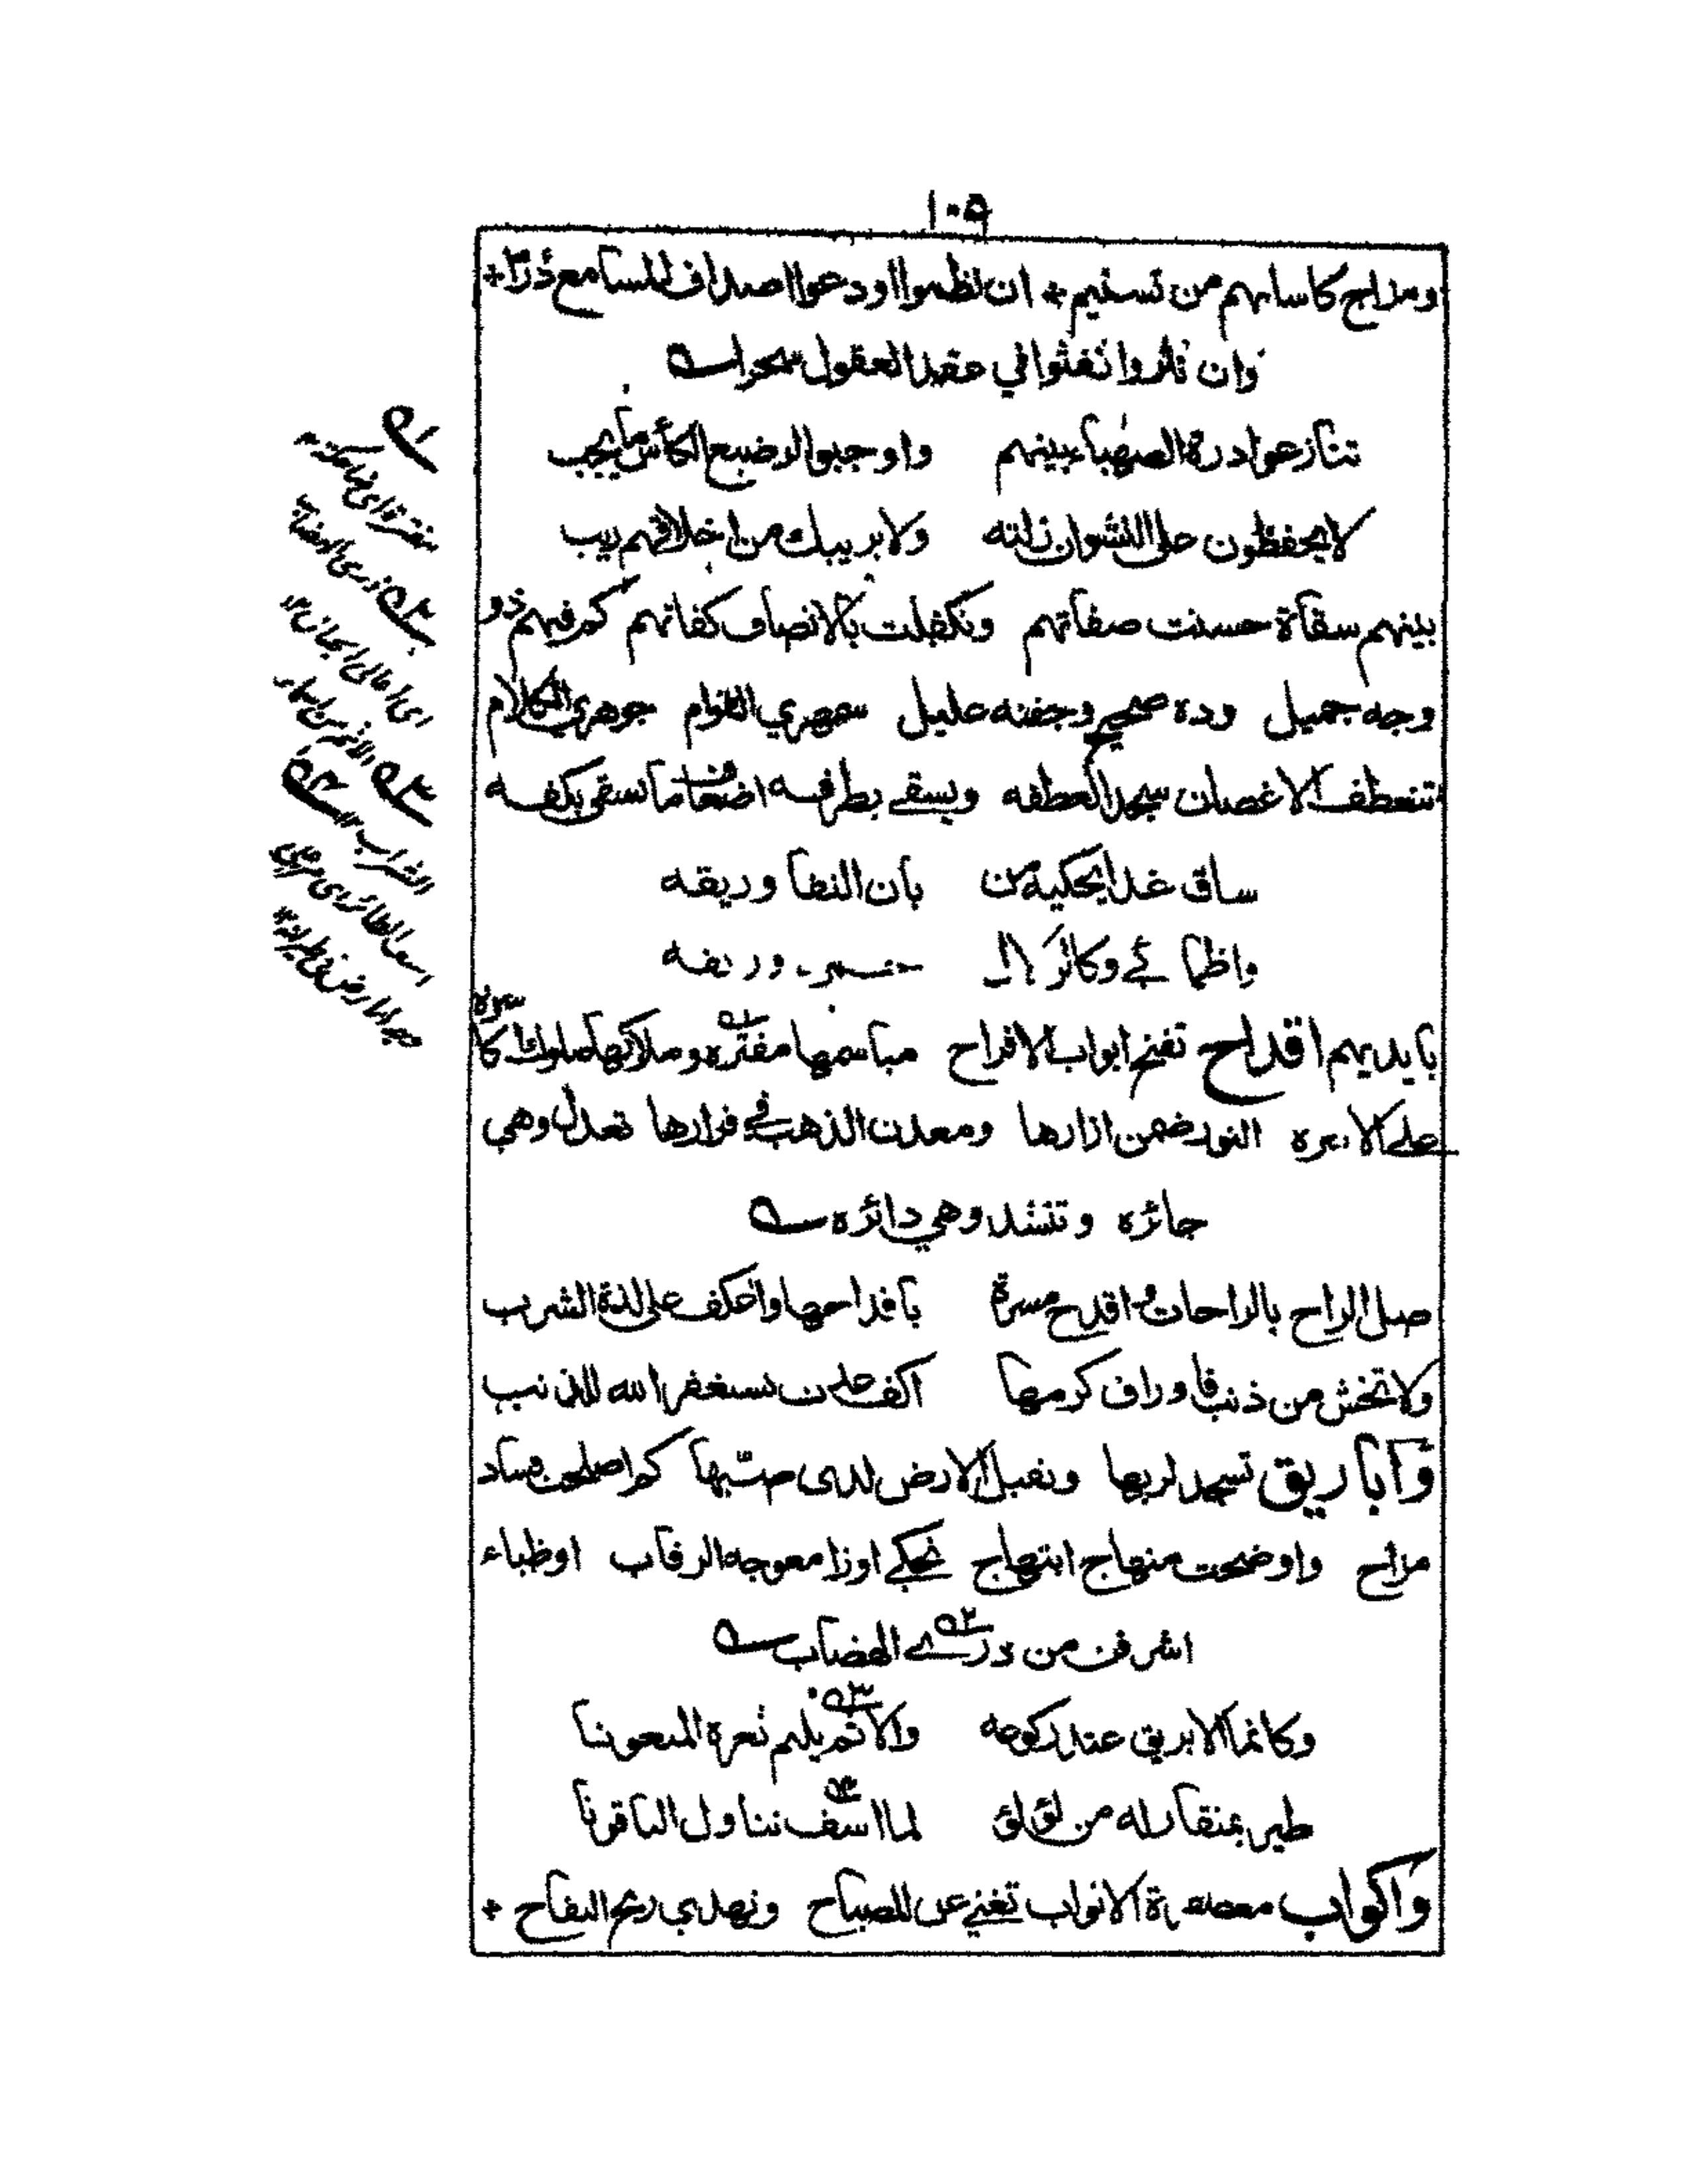 ١٠٥
ومزاج كاساتهم من تسنيم + ان نظموا اودعوا اصداف المسامع دررا +
وان نثروا نفثوا في عقد العقول سحرا
تنازعوا درة الصهباء بينهم واوجبوا لرضيع الكأس ما يجب
لا يحفظون على النشوان زلته ولا يريبك من اخلاقهم ريب
بينهم سقاة حسنت صفاتهم وتكفلت بالانصاف كفاتهم كم فيهم ذو
وجه جميل وده صحيح وجفنه عليل سمهري القوام جوهري الكلام
تنعطف الاغصان سجدا لعطفه ويسقي بطرفه اضعاف ما يسقى بكفه
ساق غدا يحكيه من بان النقا وريقه
واظمائي وكائر الا وريقه
بايديهم اقداح تفتح ابواب الافراح مباسمها مفتره وملاكها ملوك كاسره
على الا النور ضمن ازارها ومعدن الذهب في قرارها تعدل وهي
جائره وتنشد وهي دائره
صل الراح بالراحات واقدح مسرة باقداحها واعكف على لذة الشرب
ولا تخش من ذنب فاوراق كرمها اكف غدت تستغفر الله للذنب
وأباريق تسجد لربها وتقبل الارض لدى صبّها كم اصلحت فساد
مزاج واوضحت منهاج ابتهاج تحكي اوزا معوجه الرقاب او ظباء
اشرفن من ذرى الهضاب
وكانما الابريق عند ركوعه والاثم يلثم ثغره المنعوتا
طير بمنقار له من لؤلؤ لما اسف تناول الياقوتا
وأكواب الاثواب تغني عن المصباح وتهدي ريح التفاح +
مفترة اى ضاحكة
ذرى الهضاب
اى اعالى الجبال ١٢
الاثم من اسماء
الشراب ١٢
اسف الطائر اى
وجه الارض فى طيرانه ١٢